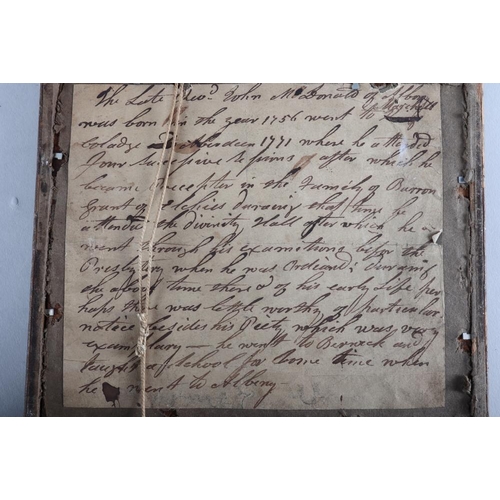 The Late Revd. John McDonald of Albany
was born in the year 1756 went to Marshall
Coladge Aberdeen 1771 where he attended
four successive sessions after which he
became Precepter in the Family of Barron
Grant of durairig that time he
attended the divinity Hall after which he
went through his examitions before the
Presbytery when he was Ordiand; durairig
the above time there of his early Life per
haps there was little worthy of particular
notice besides his Piety which was very
exemplary — he went to Berwick and
taught a School for Some time when
he went to Albeny